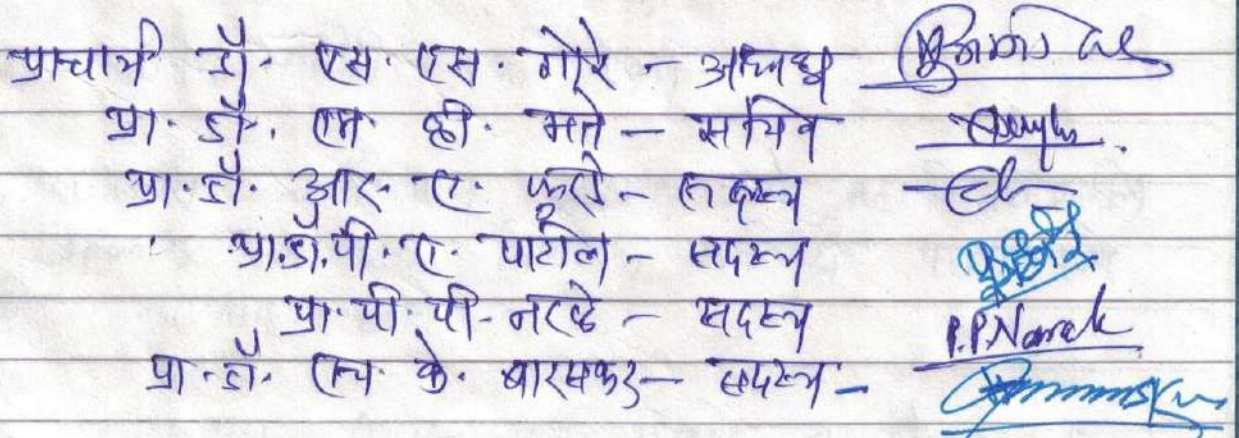 प्राचार्य डॉ. एस. एस. गोरे - अध्यक्ष
प्रा. डॉ. एम व्ही. मते - सचिव
प्रा. डॉ. आर. ए. - सदस्य
प्रा. डॉ. पी. ए. पाटील - सदस्य
प्रा. पी. पी. नरळे - सदस्य P.P.Narale
प्रा. डॉ. एच के. बारसकर - सदस्य -